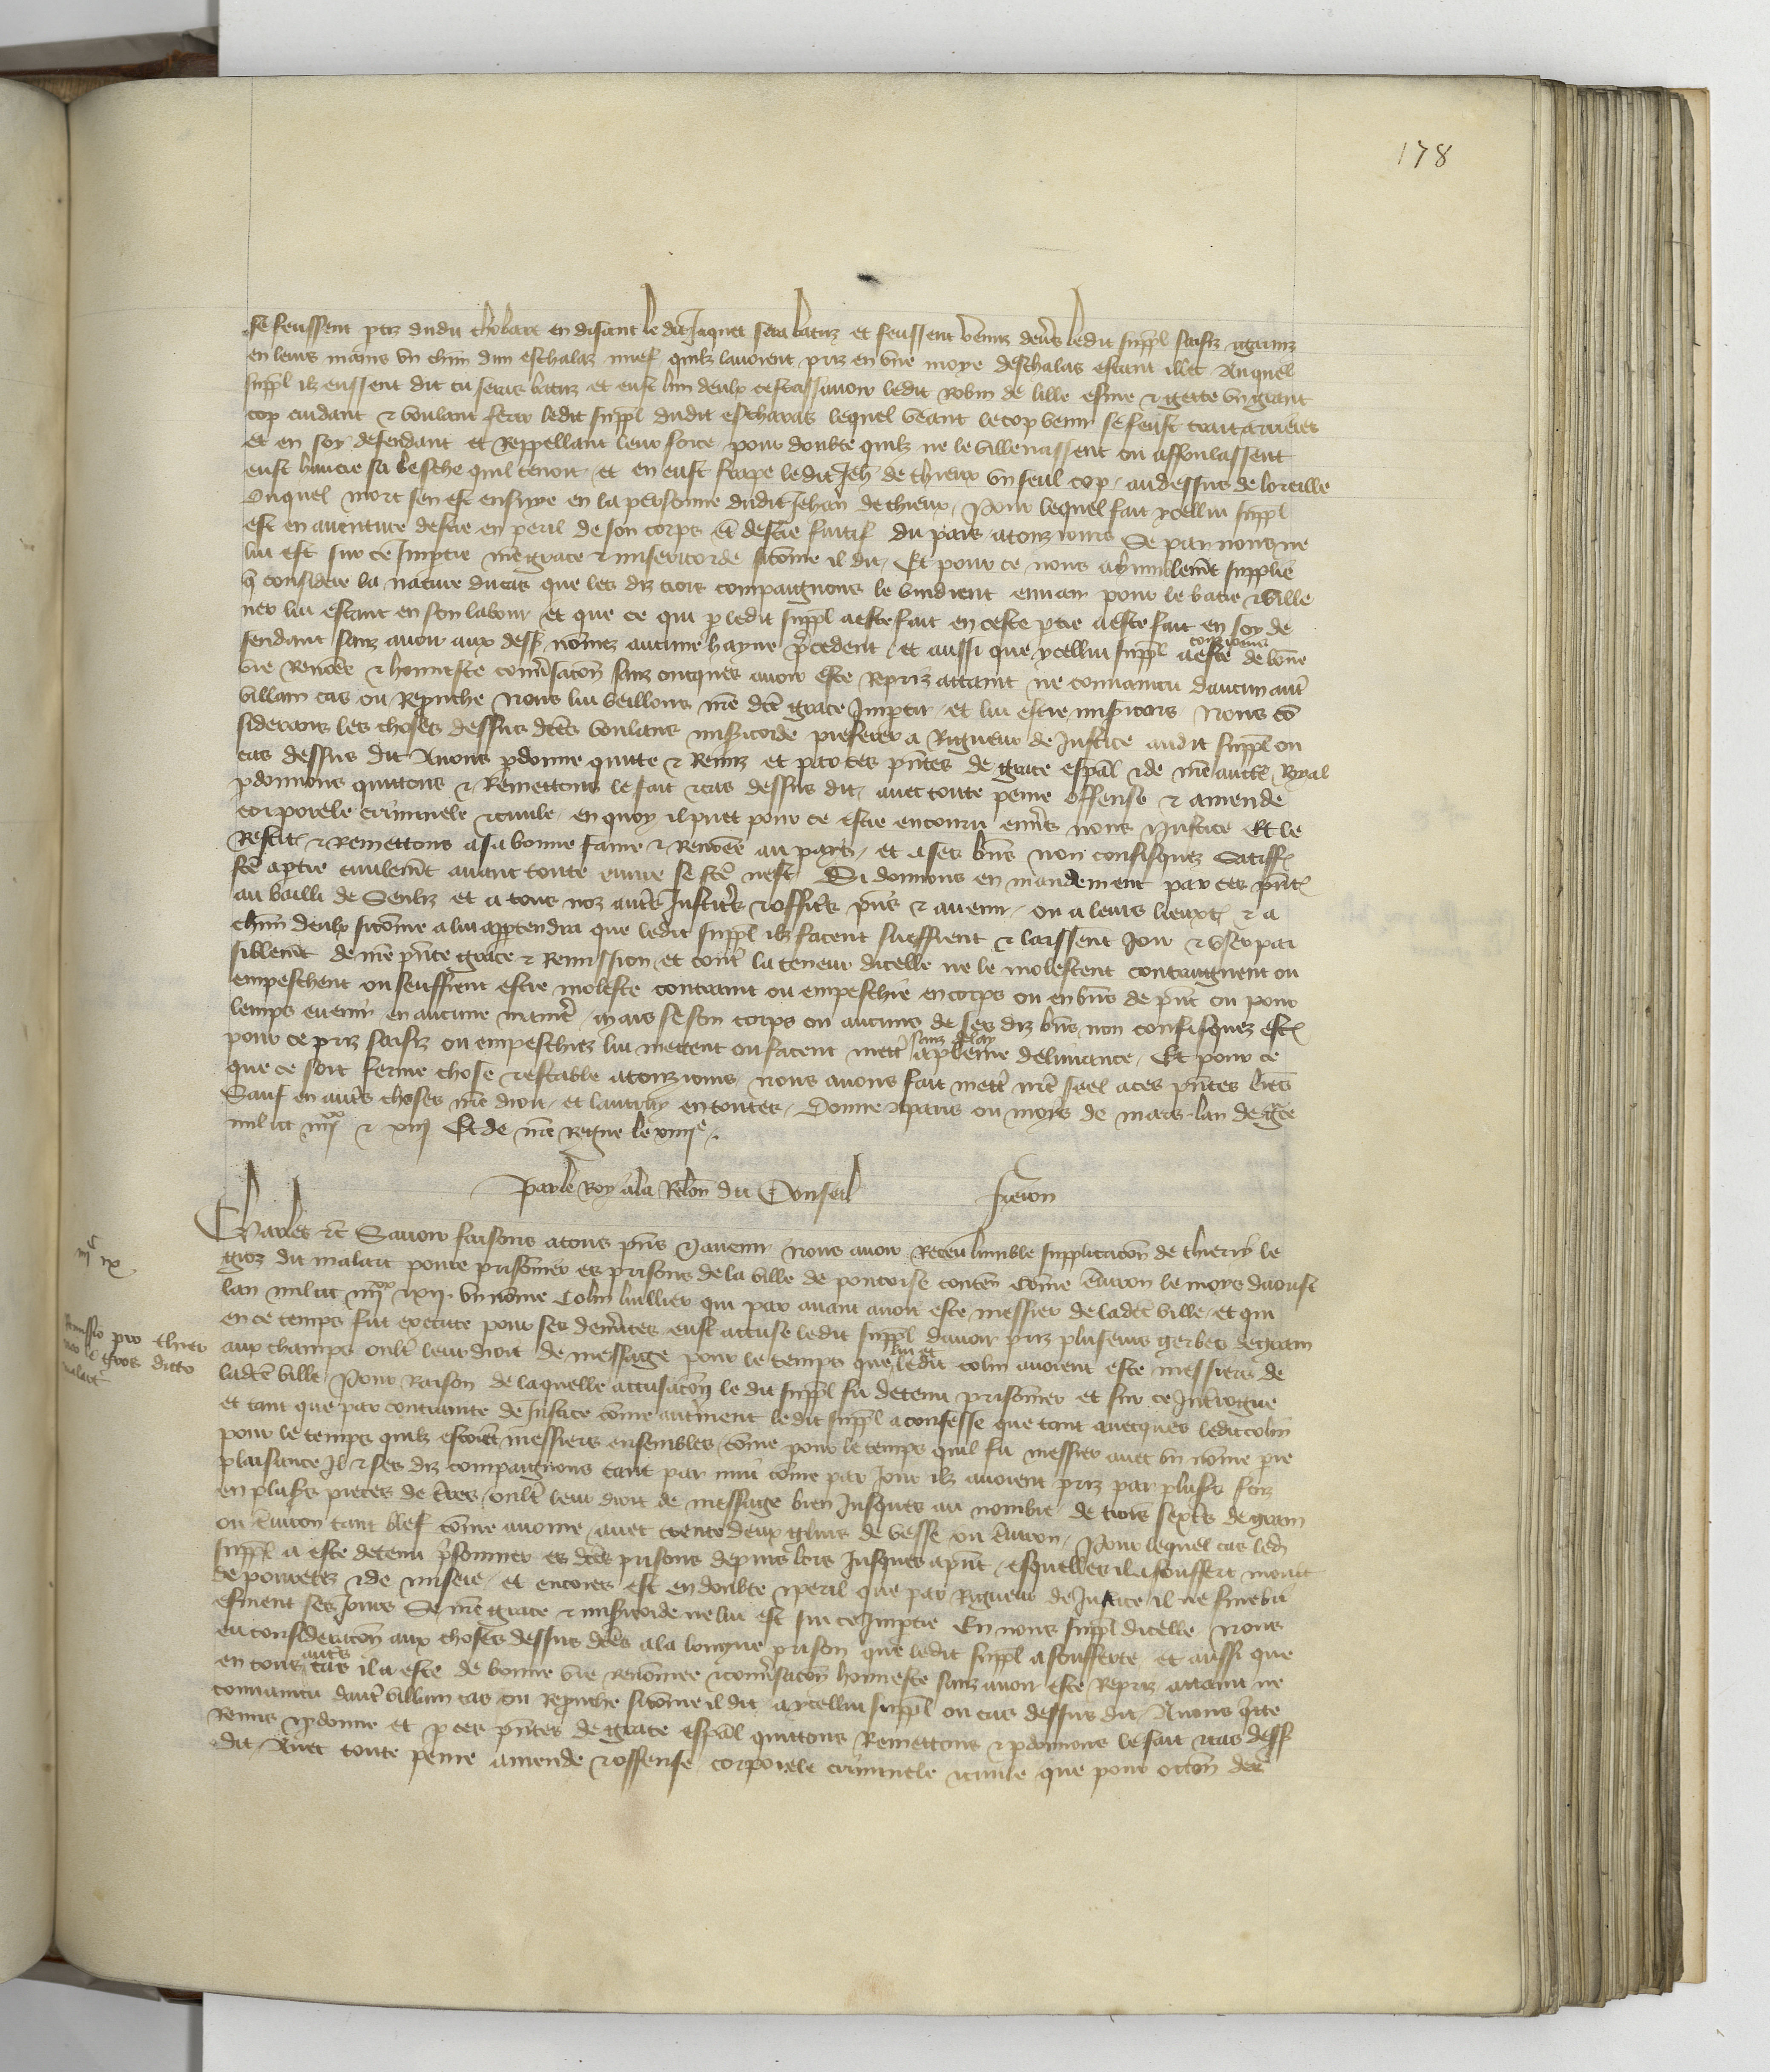 178
se feussent ptiz dudit thobart en disant le dit Jaquet sera batuz et feussent venuz devers ledit suppl saisiz garniz
en leurs mains un chun dun eschalaz nuef quilz lavoient priz en une moye deschalas estant illec Auquel
suppl ilz eussent dit tu seras batuz et eust lun deulx cestassavoir ledit Robin de lille esme & gette un grant
cop cuidant & voulant ferir ledit suppl dudit escharaz lequel veant le cop venir se feust trait arrieres
et en soy defendant et Reppellant leur force pour doubte quilz ne le villenassent ou affoulassent
eust haucie sa besche quil tenoit et en eust frape ledit Jeh de thieux un seul cop au dessus de loreille
Duquel mort sen est ensuye en la personne dudit Jehan de thieux Pour lequel fait ycellui suppl
est en aventure destre en peril de son corps et destre fuitif du pais atouzjours Se par nous ne
lui est sur ce Imptie nre grace & misericorde sicome il dit Et pour ce nous a humblemt supplie
q considere la nature du cas que les diz trois compaignons le vindrent envair pour le batre & ville
ner lui estant en son labour et que ce qui p ledit suppl a este fait en ceste ptie a este fait en soy de
fendant sanz avoir aux dess nomez aucune hayne precedent et aussi que ycellui suppl a este touzjours de bone
vie Renomee & honneste conversacon sanz oncques avoir este Repris attaint ne convaincu daucun autre
villain cas ou Reprouche Nous lui veillons nre dce grace Impartir et lui estre misicors Nous con
siderans les choses dessus dictes voulans misicorde preferer a Rigueur de Justice audit suppl ou
cas dessus dit Avons pdonne quitte & Remis et par ces pntes de grace espal & de nre aucte Royal
pdonnons quittons & Remettons le fait & cas dessus dit avec toute peine offense & amende
corporele criminele & civile en quoy il puet pour ce estre encouru envers nous & Justice Et le
Restit & Remettons a sa bonne fame & Renomee au pays et a ses bns non confisquez Satiff
fce a ptie civilemt avant toute euvre se fce nest Si donnons en mandement par ces pnt
au bailli de Senliz et a tous noz autres Justiciers & officiers pns & avenir ou a leurs lieuxt & a
chun deulx sicome a lui appartendra que ledit suppl ilz facent sueffrent & laissent Joir & user pai
siblemt de nre pnte grace & Remission et contre la teneur dicelle ne le molestent contraignent ou
empeschent ou seuffrent estre moleste contraint ou empeschie en corps ou en bns de pnt ou pour
temps avenir en aucune maniere mais se son corps ou aucuns de ses diz bns non confisquez est
pour ce priz saisiz ou empeschiez lui mettent ou facent mettre sanz delay a pleine delivrance Et pour ce
que ce soit ferme chose & estable atouzjours nous avons fait mettre nre seel a ces pntes lres
Sauf en autres choses nre droit et lautruy en toutes Donne a paris ou moys de mars lan de gce
mil ccc iiiixx & xiij Et de nre Regne le xiiije
Par le Roy a la Relon du Conseil Freron
iijc ix
Charles etc Savoir faisons a tous pns & avenir Nous avoir Receu lumble supplicacon de thierry le
groz dit malart povre prisonier es prisons de la ville de pontoise conten Come environ le moys daoust
lan mil ccc iiiixx & xij un nome Colin huillier qui par avant avoit este messier de ladce ville et qui
en ce temps fut execute pour ses demerites eust accuse ledit suppl davoir priz pluseurs gerbes de grain
aux champs oultre leur droit de message pour le temps que lui et ledit colin avoient este messiers de
ladce ville Pour Raison de laquelle accusacon le dit suppl fu detenu prisonier et sur ce Introgue
et tant que par contrainte de Justice come autrement ledit suppl a confesse que tant avecques ledit colin
pour le temps quilz estoient messiers ensembles come pour le temps quil fu messier avec un nome pre
plaisance Il & ses diz compaignons tant par nuit come par Jour ilz avoient priz par plusrs foiz
en plusrs pieces de tres oultre leur droit de message bien Jusques au nombre de trois sextiers de grain
ou environ tant blef come avoine avec trente deux gluis de vesse ou environ Pour lequel cas led
suppl a este detenu prisonnier es dces prisons depuis lors Jusques apnt esquelles il a souffert moult
de povretez & de misere et encores est en doubte & peril que par Rigueur de Justice il ne fine bri
esment ses jours Se nre grace & misicorde ne lui est sur ce Imptie En nous suppl dicelle Nous
eu consideracon aux choses dessus dces a la longue prison que ledit suppl a soufferte et aussi que
en tous autres cas il a este de bonne vie renommee & conversacon honneste sanz avoir este Repriz attaint ne
convaincu dautre villain cas ou Reprouche sicome il dit a ycellui suppl ou cas dessus dit Avons qitte
Remis & pdonne et p ces pntes de grace espal quittons Remettons & pdonnons le fait & cas dess
dit Avec toute peine amende & offense corporele criminele & civile que pour occon de ce
Remissio pro thier
rico le groz dicto
malart